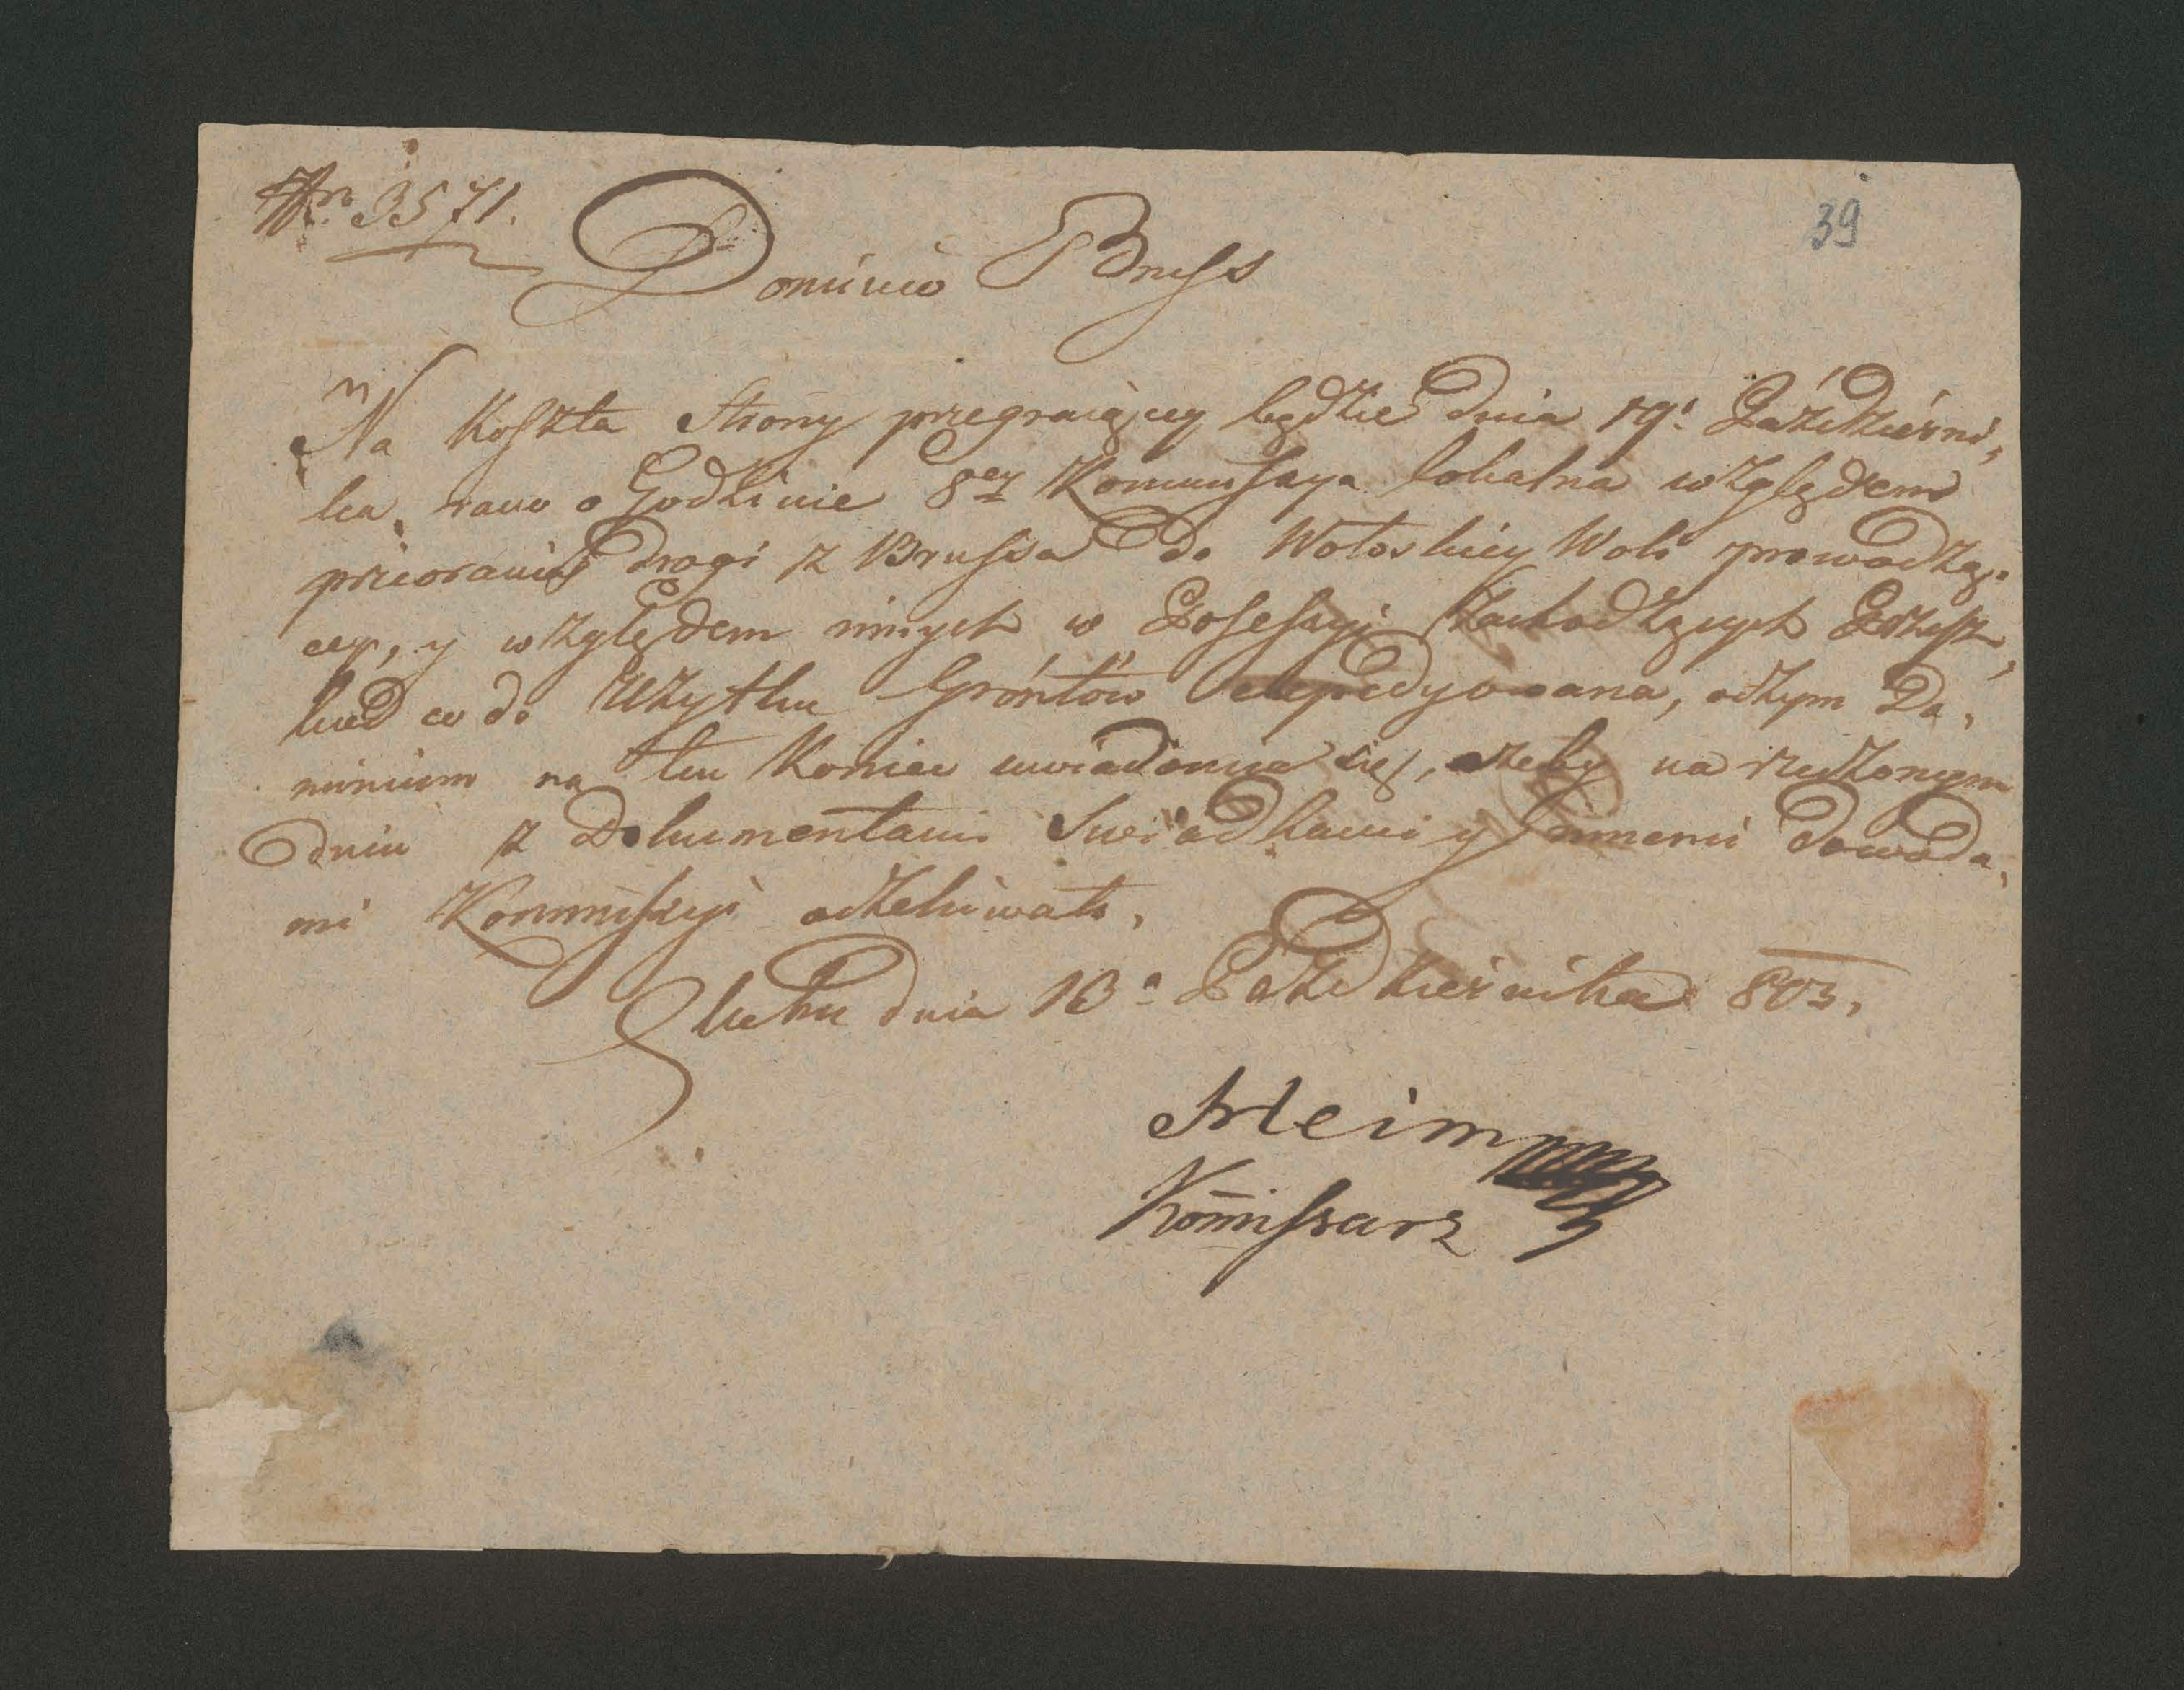 Nro 3571.
39
Dominio Bruss
Na Koszta Strony przegraiącey będzie dnia 19. Pazdzierni,
ka rano o Godzinie 8ey Kommissya lokalna względem
przeorania drogi z Brussa do Wołoskiey Woli prowadzą,
cey, y względem innych w Possessyi zachodzących Przesz,
kod co do Użytku Gróntów expedyowana, o czym Do,
minium na ten Koniec uwiadomia się, ażeby na rzeczonym
dniu z Dokumentami Swiadkami y innemi dowoda,
mi Kommissyi oczekiwało.
dnia 13a Pazdziernika 803.
Kom̄issarz